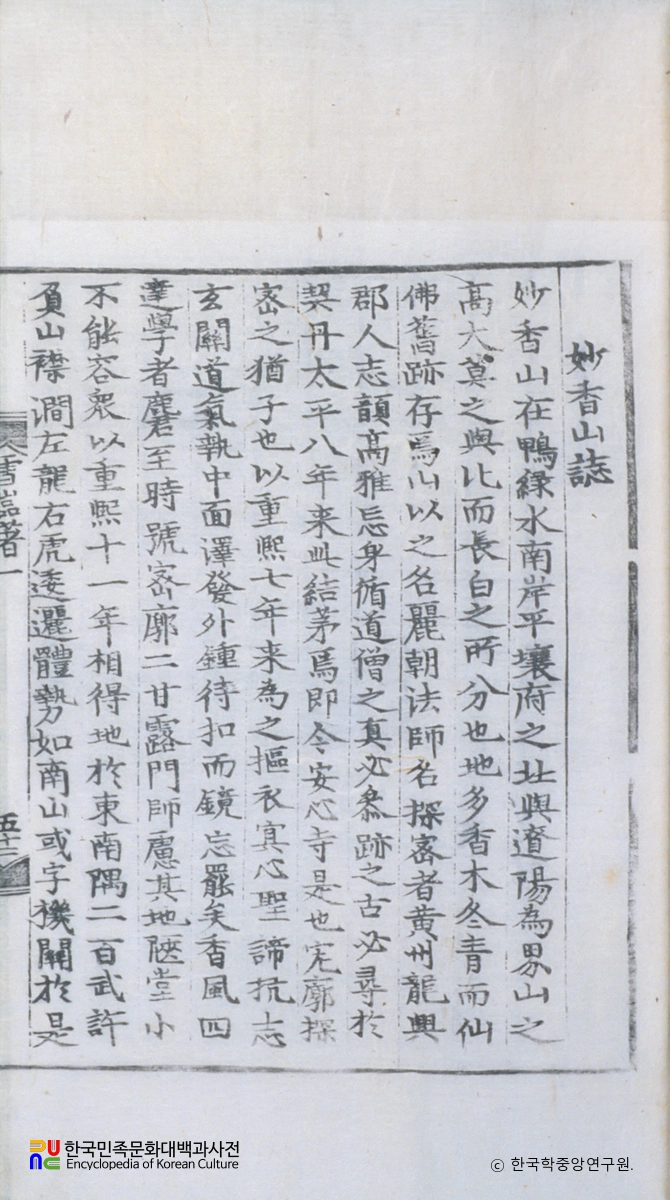 妙香山誌
妙香山在鴨緑水南岸平壤府之北與遼陽為界山之
高大莫之與比而長白之所分也地多香木冬青而仙
佛舊跡存焉山以之名麗朝法師名探密者黄州龍興
郡人志韻高雅忘身循道僧之真必叅跡之古必尋於
契丹太平八年来此結茅焉即今安心寺是也宏廓探
密之猶子也以重熙七年来為之摳衣冥心聖諦抗志
玄關道氣執中面澤發外鍾待扣而鏡忘罷矣香風四
達學者麕至時號密廓二甘露門師慮其地陿堂小
不能容衆以重熙十一年相得地於東南隅二百武許
負山襟澗左龍右虎逶邐體勢如南山或字機關於是
雪巖著一
五十二
한국민족문화대백과사전
Encyclopedia of Korean Culture
© 한국학중앙연구원.